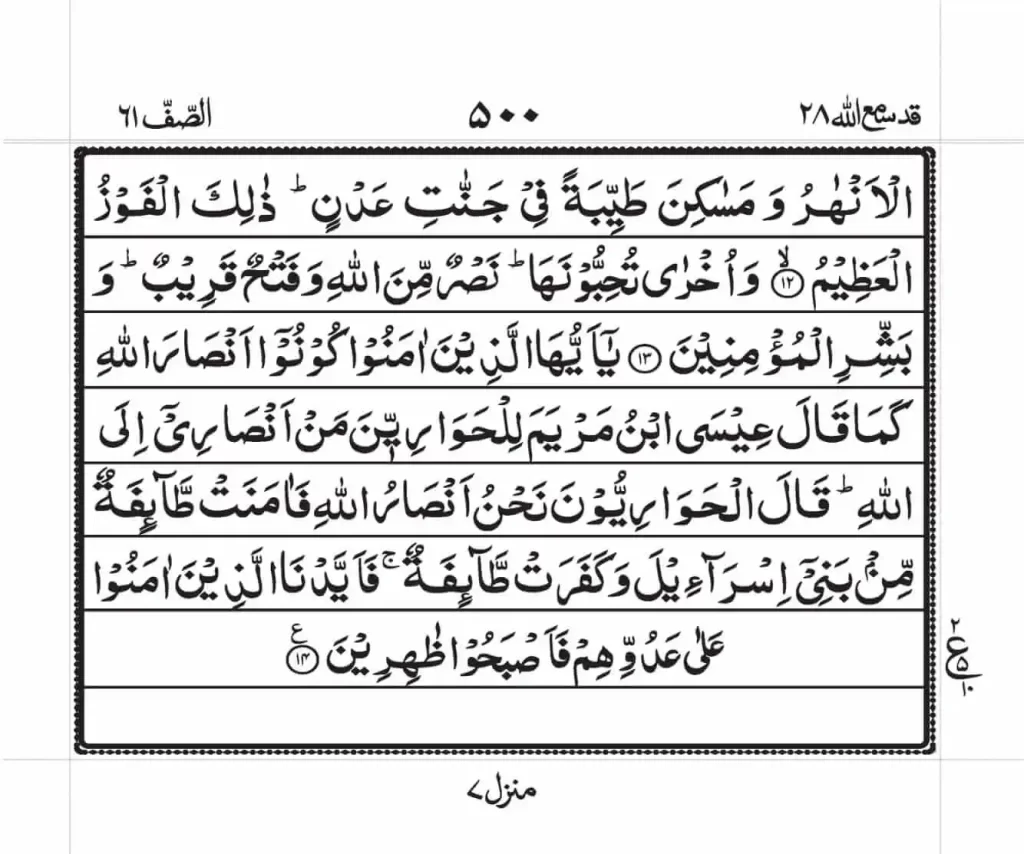 قد سمع الله ٢٨
۵۰۰
الصّفّ ٦١
الْاَنْهٰرُ وَ مَسٰكِنَ طَيِّبَةً فِيْ جَنّٰتِ عَدْنٍ ؕ ذٰلِكَ الْفَوْزُ
الْعَظِيْمُ ۙ‏﴿۱۲﴾ وَاُخْرٰى تُحِبُّوْنَهَا ؕ نَصْرٌ مِّنَ اللّٰهِ وَفَتْحٌ قَرِيْبٌ ؕ وَ
بَشِّرِ الْمُؤْمِنِيْنَ ﴿۱۳﴾ يٰۤاَيُّهَا الَّذِيْنَ اٰمَنُوْا كُوْنُوْۤا اَنْصَارَ اللّٰهِ
كَمَا قَالَ عِيْسَى ابْنُ مَرْيَمَ لِلْحَوَارِيّٖنَ مَنْ اَنْصَارِيْۤ اِلَى
اللّٰهِ ؕ قَالَ الْحَوَارِيُّوْنَ نَحْنُ اَنْصَارُ اللّٰهِ فَاٰمَنَتْ طَّآئِفَةٌ
مِّنْۢ بَنِيْۤ اِسْرَآءِيْلَ وَكَفَرَتْ طَّآئِفَةٌ ۚ فَاَيَّدْنَا الَّذِيْنَ اٰمَنُوْا
عَلٰى عَدُوِّهِمْ فَاَصْبَحُوْا ظٰهِرِيْنَ ﴿۱۴﴾ ع
٢
ع
۵
١٠
منزل ٧